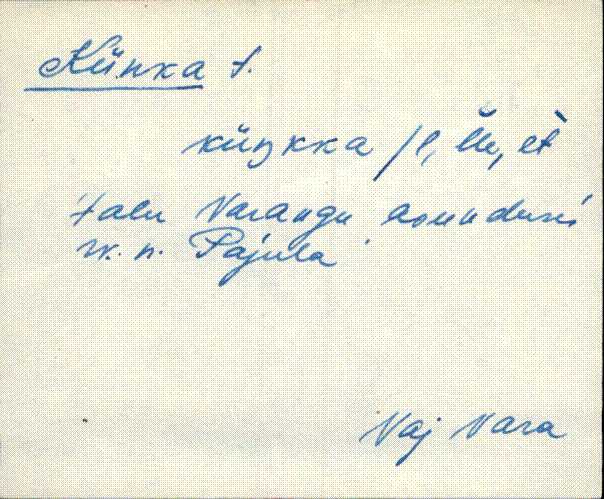 Künka t.
küŋkka /l, lle, lt
talu Varangu asunduses
rv. n. Pajula
Vaj Vara